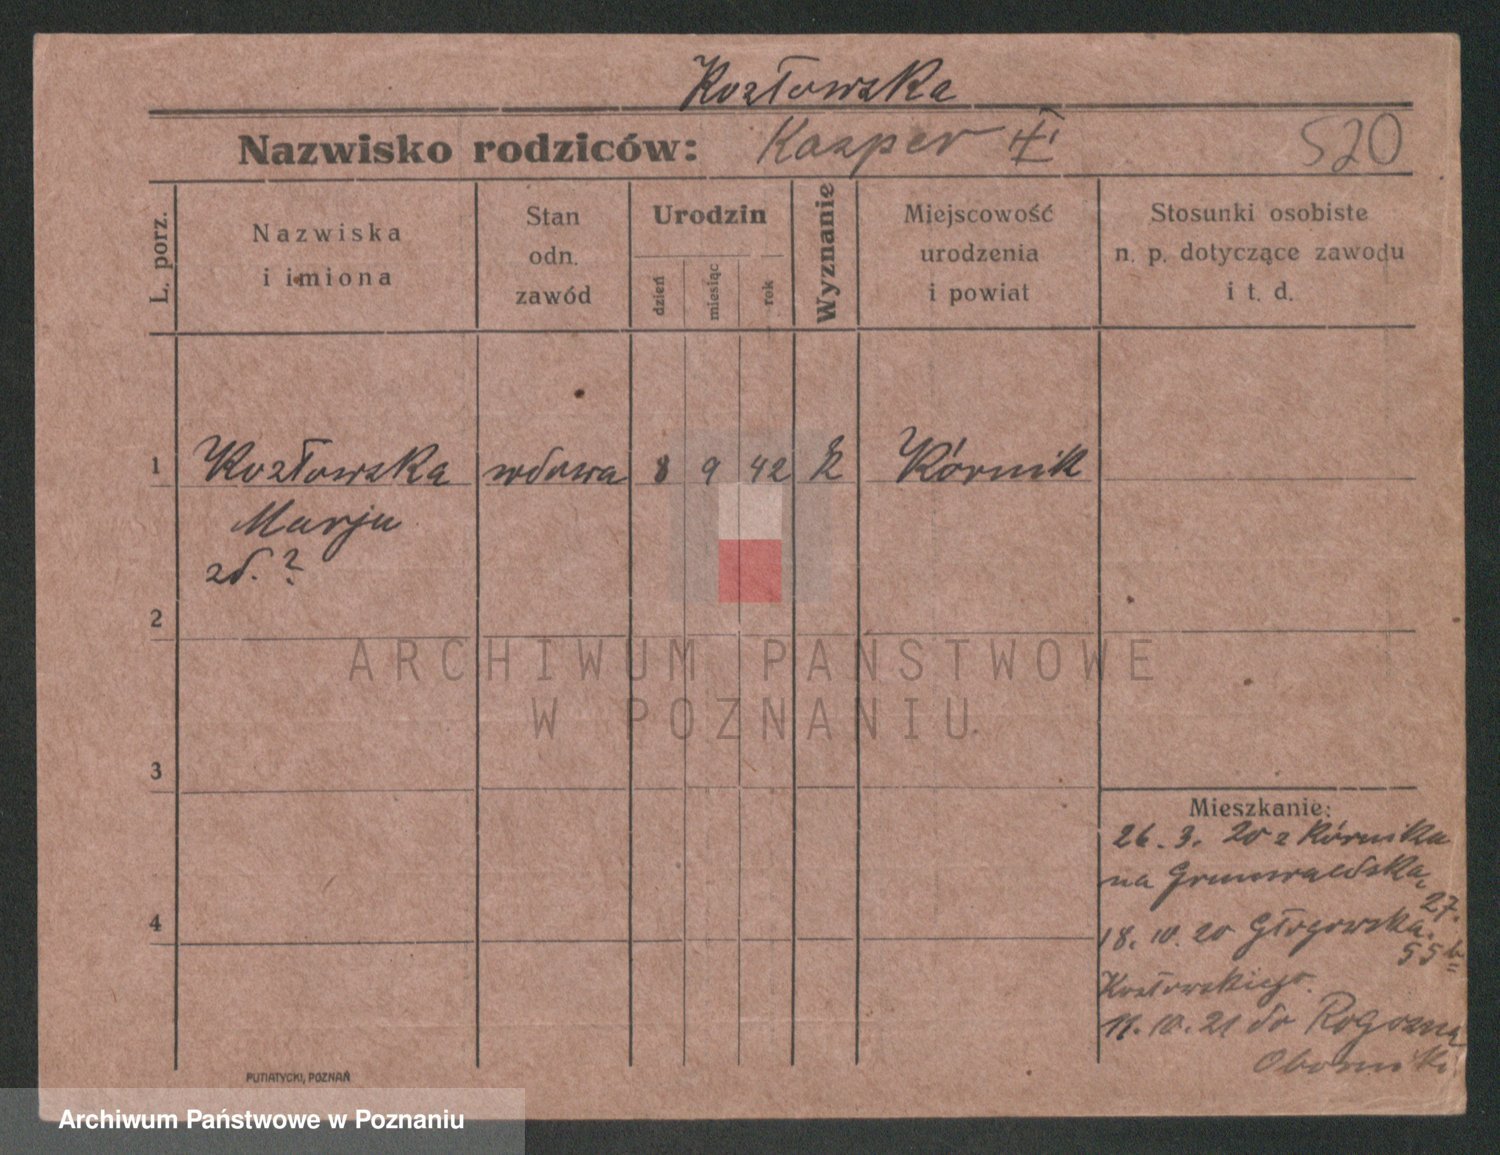 Kozłowska
Nazwisko rodziców: Kasper
520
L. porz.
Nazwiska
i imiona
Stan
odn.
zawód
Urodzin
dzień
miesiąc
rok
Wyznanie
Miejscowość
urodzenia
i powiat
Stosunki osobiste
n. p. dotyczące zawodu
i t. d.
1 Kozłowska wdowa 8 9 42 k Kórnik
Marja
zd. ?
2
ARCHIWUM PAŃSTWOWE
W POZNANIU
3
Mieszkanie:
26. 3. 20 z Kórnika
na Grunwaldska
27.
18. 10. 20 Głogowska.
55 b
4
Kozłowskiego.
11. 10. 21 do Rogozna
Oborniki
PUTIATYCKI, POZNAŃ
Archiwum Państwowe w Poznaniu